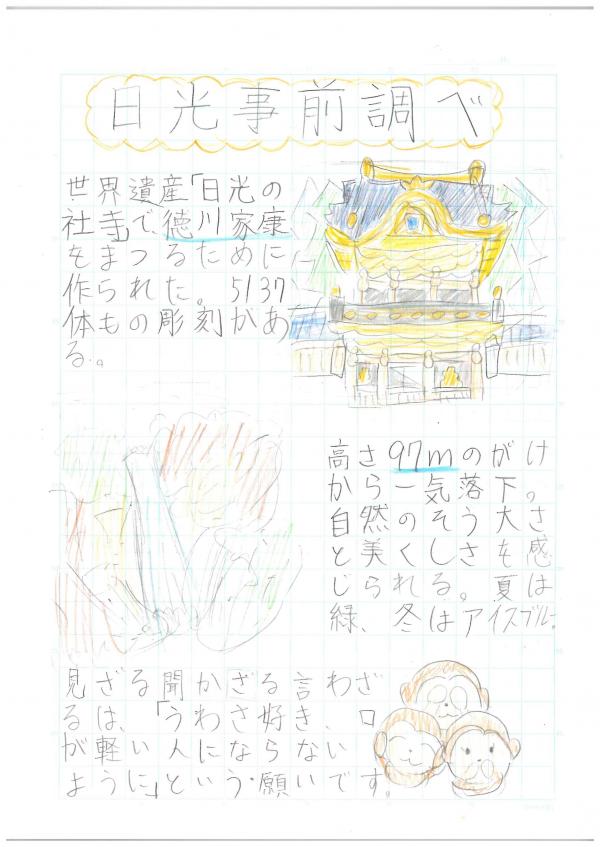 日光事前調べ
世界遺産「日光の
社寺」で徳川家康
をまつるために
作られた。5137
体もの彫刻があ
る。
高さ97mのがけ
から一気落下。
自然のそう大さ
と美しさも感
じられる。夏は
緑、冬はアイスブルー。
見ざる聞かざる言わざ
るは、「うわさ好き、口
が軽い人にならない
ように」という願いです。